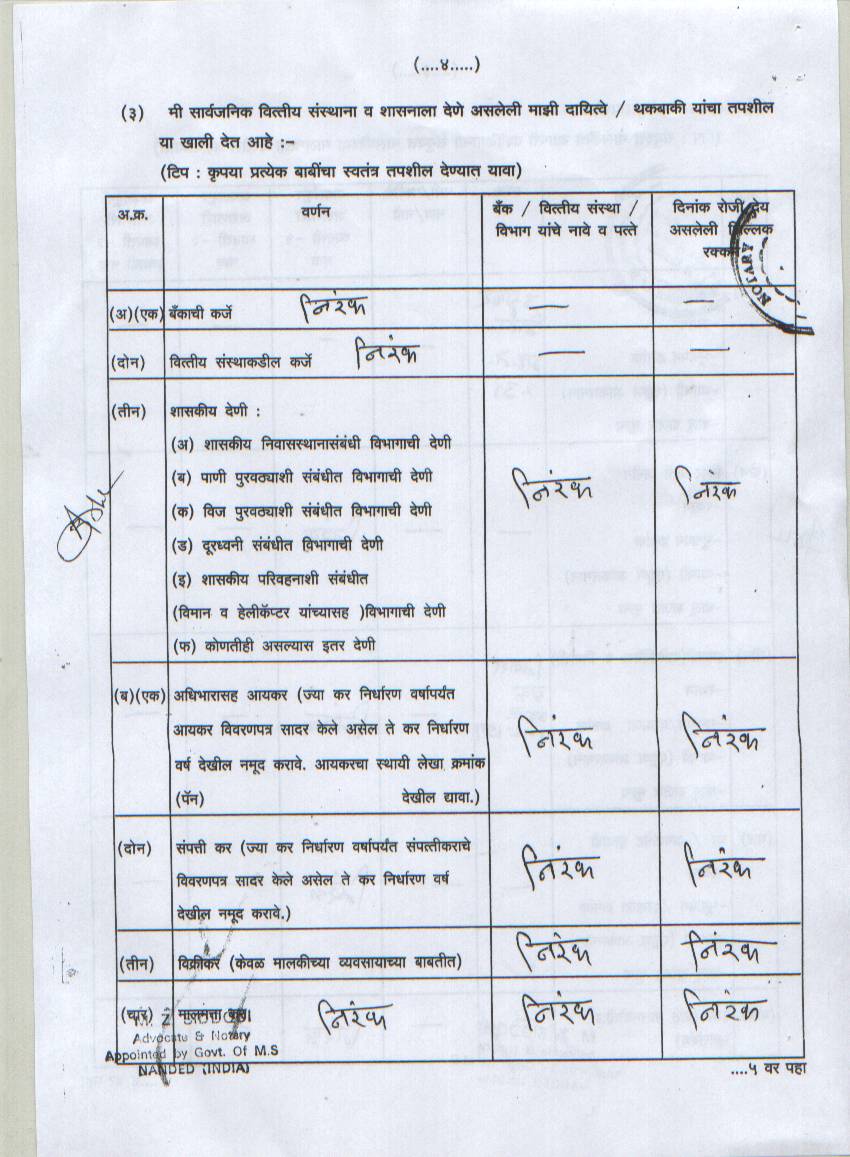 (....४.....)
(३) मी सार्वजनिक वित्तीय संस्थाना व शासनाला देणे असलेली माझी दायित्वे / थकबाकी यांचा तपशील
या खाली देत आहे :–
(टिप : कृपया प्रत्येक बाबींचा स्वतंत्र तपशील देण्यात यावा)
अ.क्र. वर्णन बँक / वित्तीय संस्था / दिनांक रोजी देय
विभाग यांचे नावे व पत्ते असलेली शिल्लक
रक्कम
NOTARY
(अ)(एक) बँकाची कर्जे निरंक — —
(दोन) वित्तीय संस्थाकडील कर्जे निरंक — —
(तीन) शासकीय देणी :
(अ) शासकीय निवासस्थानासंबंधी विभागाची देणी
(ब) पाणी पुरवठ्याशी संबंधीत विभागाची देणी निंरक निंरक
(क) विज पुरवठ्याशी संबंधीत विभागाची देणी
(ड) दूरध्वनी संबंधीत विभागाची देणी
(इ) शासकीय परिवहनाशी संबंधीत
(विमान व हेलीकॅप्टर यांच्यासह )विभागाची देणी
(फ) कोणतीही असल्यास इतर देणी
(ब)(एक) अधिभारासह आयकर (ज्या कर निर्धारण वर्षापर्यंत
आयकर विवरणपत्र सादर केले असेल ते कर निर्धारण निंरक निंरक
वर्ष देखील नमूद करावे. आयकरचा स्थायी लेखा क्रमांक
(पॅन) देखील द्यावा.)
(दोन) संपत्ती कर (ज्या कर निर्धारण वर्षापर्यंत संपत्तीकराचे
विवरणपत्र सादर केले असेल ते कर निर्धारण वर्ष निंरक निंरक
देखील नमूद करावे.)
(तीन) विक्रीकर (केवळ मालकीच्या व्यवसायाच्या बाबतीत) निरंक निंरक
(चार) मालमत्ता निंरक निंरक निंरक
Advocate & Notary
Appointed by Govt. Of M.S
NANDED (INDIA)
....५ वर पहा